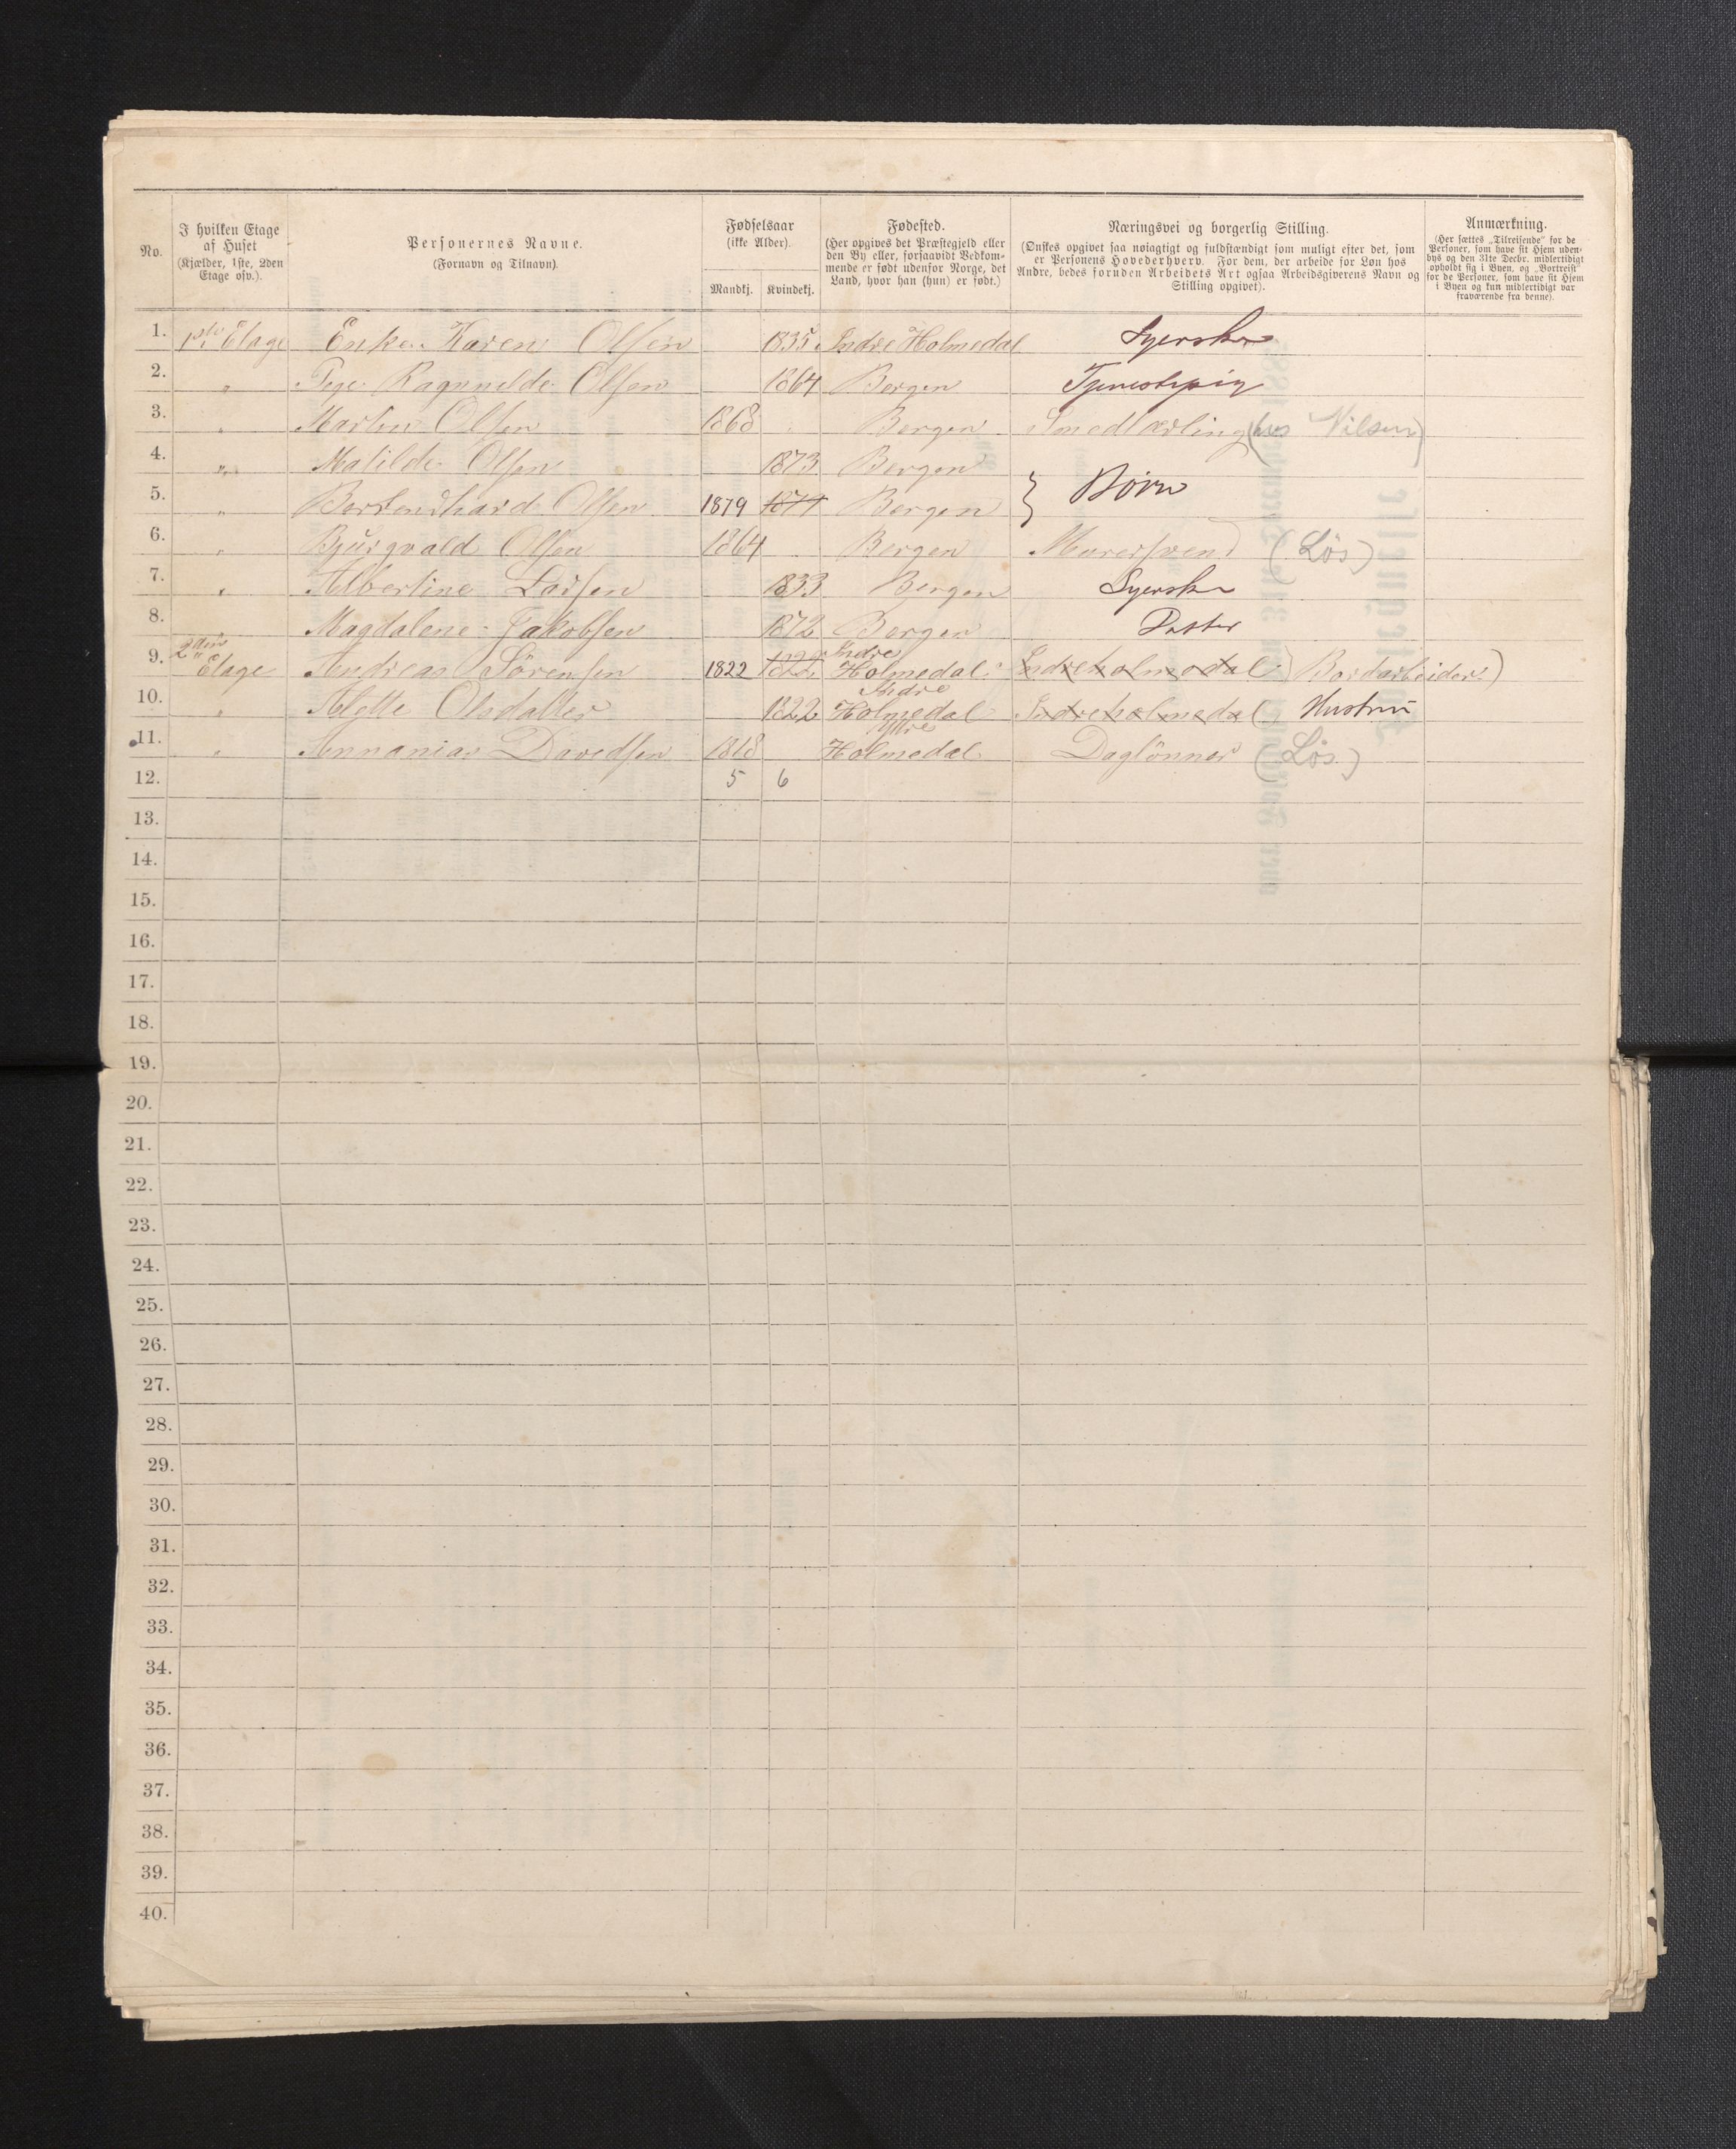 No.
I hvilken Etage
af Huset
(Kjælder, 1ste, 2den
Etage osv.).
Personernes Navne.
(Fornavn og Tilnavn).
Fødselsaar
(ikke Alder).
Mandkj. Kvindekj.
Fødested.
(Her opgives det Præstegjeld eller
den By eller, forsaavidt Vedkom-
mende er født udenfor Norge, det
Land, hvor han (hun) er født.)
Næringsvei og borgerlig Stilling.
(Ønskes opgivet saa nøiagtigt og fuldstændigt som muligt efter det, som
er Personens Hovederhverv. For dem, der arbeide for Løn hos
Andre, bedes foruden Arbeidets Art ogsaa Arbeidsgiverens Navn og
Stilling opgivet).
Anmærkning.
(Her sættes „Tilreisende" for de
Personer, som have sit Hjem uden-
bys og den 31te Decbr. midlertidigt
opholdt sig i Byen, og „Bortreist"
for de Personer, som have sit Hjem
i Byen og kun midlertidigt var
fraværende fra denne).
1. 1ste Etage Enke. Karen Olsen 1835 Indre Holmedal Syerske
2. " Pige Ragnnilde Olsen 1864 Bergen Tjenestepig
3. " Martin Olsen 1868 Bergen Smedlærling (hos Nilsen)
4. " Matilde Olsen 1873 Bergen
5. " Olsen 1879 Bergen } Börn
6. " Olsen 1864 Bergen Murersvend (Løs)
7. " Albertine Larsen 1833 Bergen Syerske
8. Magdalene Jakobsen 1872 Bergen
9. 2den Etage Andreas Sörensen 1822 1822 Indre Holmedal Indreholmedal (Bordarbeider)
10. " Olsdatter 1822 Indre Holmedal Indreholmedal Hustru
11. " Annanias Davidsen 1818 Yttre Holmedal Daglönner (Løs.)
12. 5 6
13.
14.
15.
16.
17.
18.
19.
20.
21.
22.
23.
24.
25.
26.
27.
28.
29.
30.
31.
32.
33.
34.
35.
36.
37.
38.
39.
40.